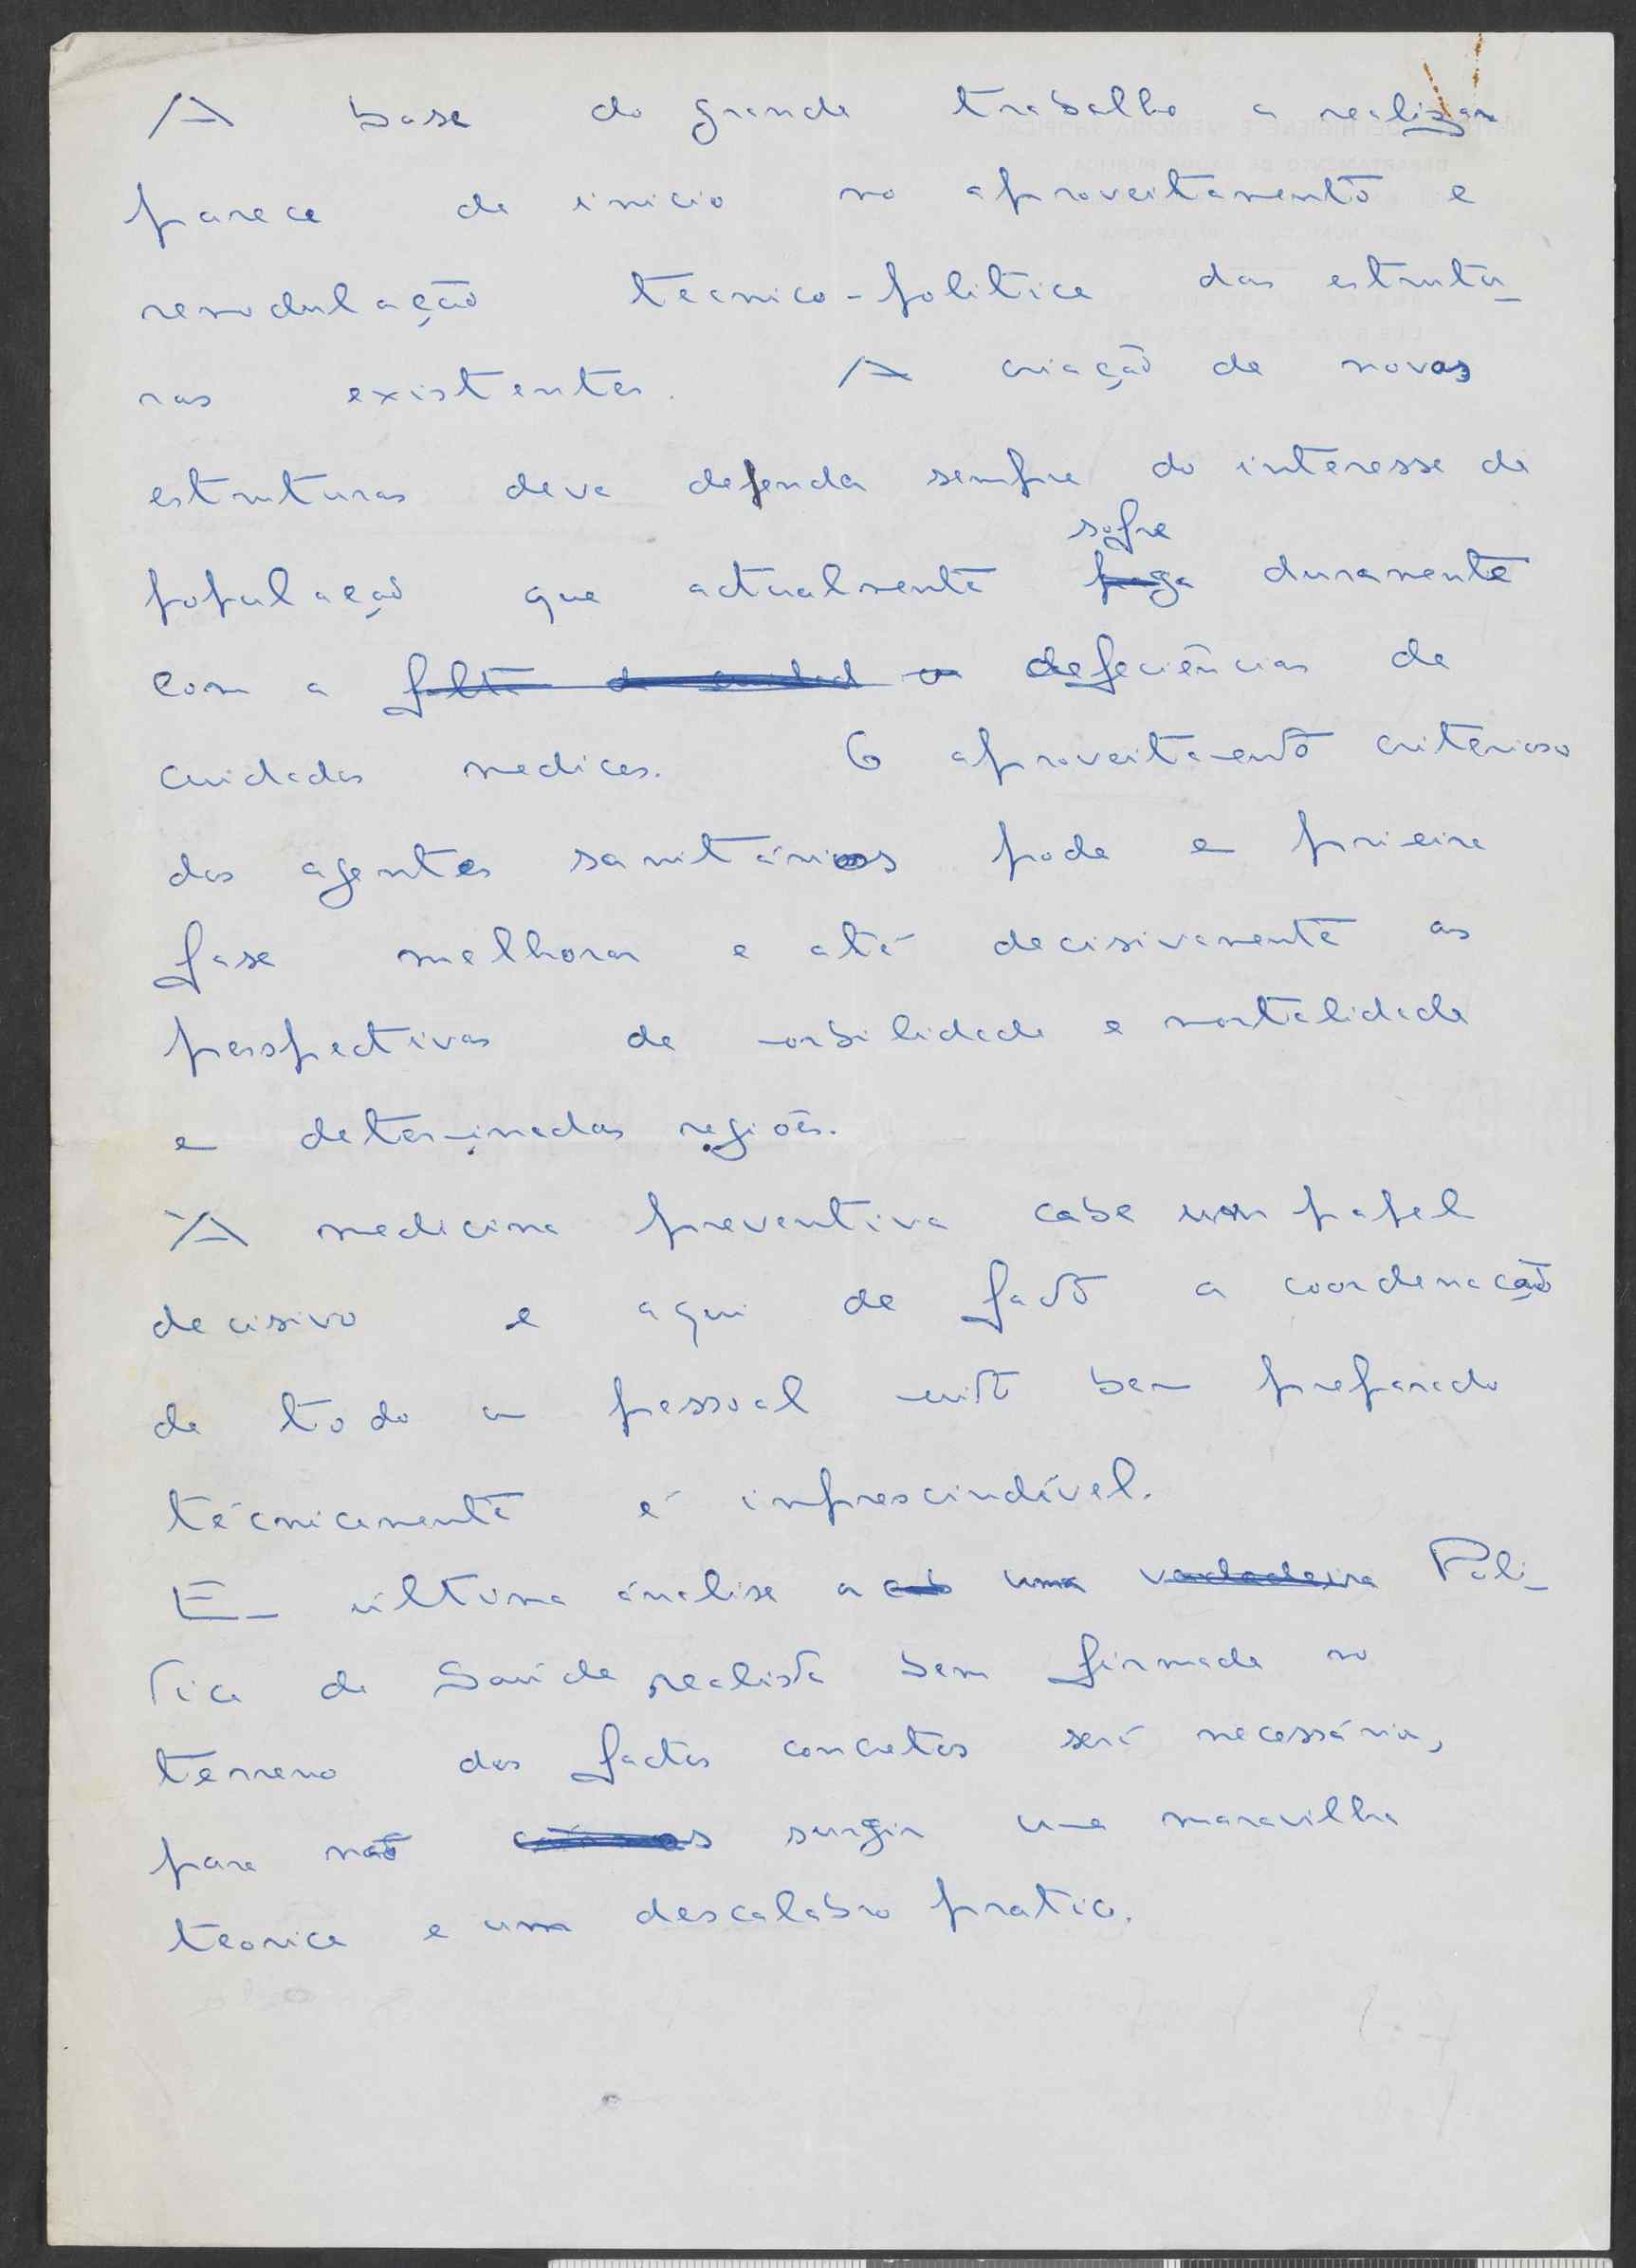 A base do grande trabalho a realizar
parece de inicio no aproveitamento e
remodulação tecnico-politica das estrutu_
ras existentes. A criação de novas
estruturas deve depender sempre do interesse da
sofre
população que actualmente paga duramente
com a falta de cuidad a deficiências de
cuidados medicos. O aproveitamento criterioso
dos agentes sanitários pode em primeira
fase melhorar e até decisivamente as
perspectivas de morbilidade e mortalidade
em determinadas regiões.
À medicina preventiva cabe um papel
decisivo e aqui de facto a coordenação
de todo um pessoal muito bem preparado
técnicamente é imprescindível.
Em última análise a uma verdadeira Poli_
tica de Saúde realista bem firmada no
terreno dos factos concretos será necessária,
para não surgir uma maravilha
teorica e um descalabro pratico.